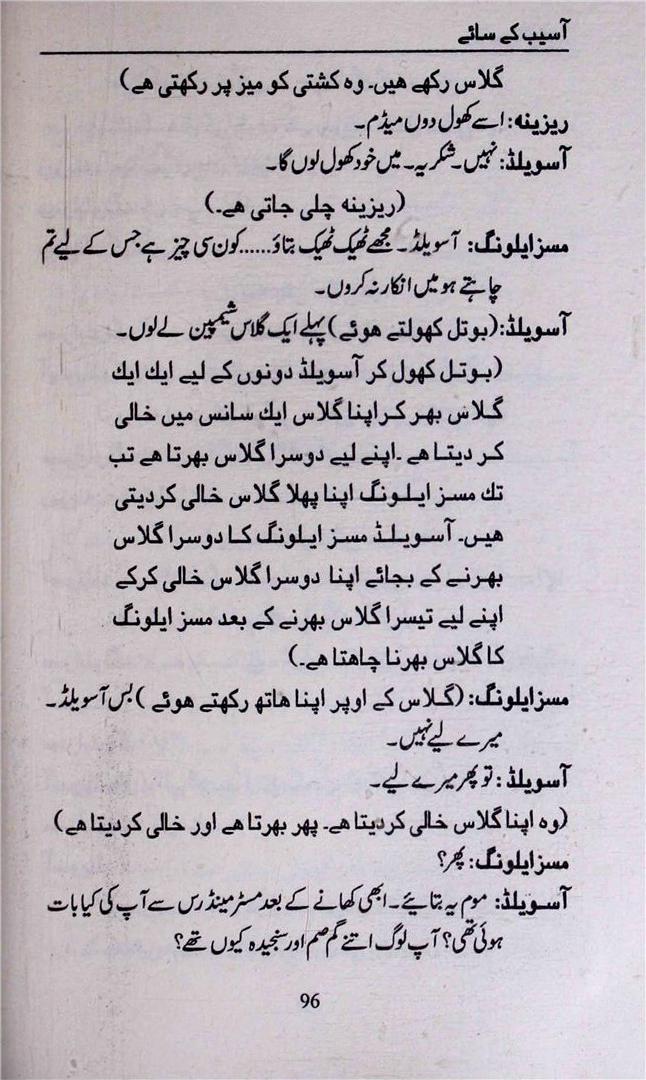 آسیب کے سائے
گلاس رکھے ھیں۔ وہ کشتی کو میز پر رکھتی ھے)
ریزینه: اسے کھول دوں میڈم۔
آسویلڈ: نہیں۔ شکریہ۔ میں خود کھول لوں گا۔
(ریزینه چلی جاتی ھے۔)
مسز ایلونگ: آسویلڈ۔ مجھے ٹھیک ٹھیک بتاؤ......کون سی چیز ہے جس کے لیے تم
چاہتے ہو میں انکار نہ کروں۔
آسویلڈ: (بوتل کھولتے ھوئے) پہلے ایک گلاس شیمپین لے لوں۔
(بوتل کھول کر آسویلڈ دونوں کے لیے ایك ایك
گلاس بھر کر اپنا گلاس ایك سانس میں خالی
کر دیتا ھے ۔اپنے لیے دوسرا گلاس بھرتا ھے تب
تك مسز ایلونگ اپنا پھلا گلاس خالی کردیتی
ھیں۔ آسویلڈ مسز ایلونگ کا دوسرا گلاس
بھرنے کے بجائے اپنا دوسرا گلاس خالی کرکے
اپنے لیے تیسرا گلاس بھرنے کے بعد مسز ایلونگ
کا گلاس بھرنا چاھتا ھے۔)
مسز ایلونگ: (گلاس کے اوپر اپنا ھاتھ رکھتے ھوئے) بس آسویلڈ۔
میرے لیے نہیں۔
آسویلڈ: تو پھر میرے لیے۔
(وہ اپنا گلاس خالی کردیتا ھے۔ پھر بھرتا ھے اور خالی کردیتا ھے)
مسز ایلونگ: پھر؟
آسویلڈ: موم یہ بتائیے۔ ابھی کھانے کے بعد مسٹر مینڈرس سے آپ کی کیا بات
ہوئی تھی؟ آپ لوگ اتنے گم صم اور سنجیدہ کیوں تھے؟
96